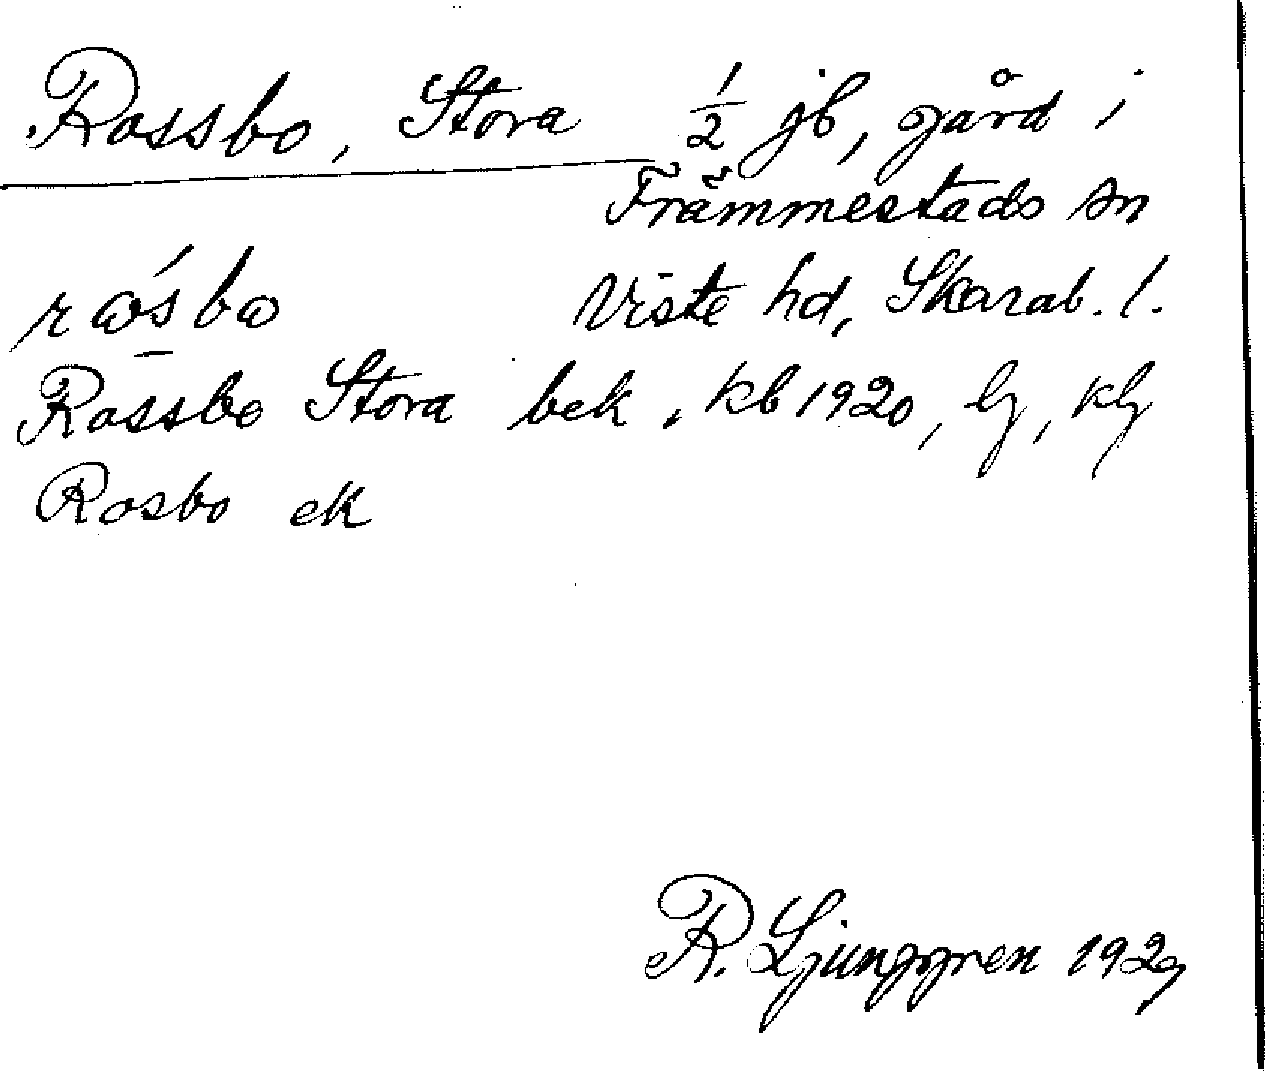 Rossbo, Stora ½ jb, gård i
Främmestads sn
Viste hd, Skarab. l.
Rossbo Stora bek. kb 1920, lg, kg
Rosbo ek
R. Ljunggren 1929